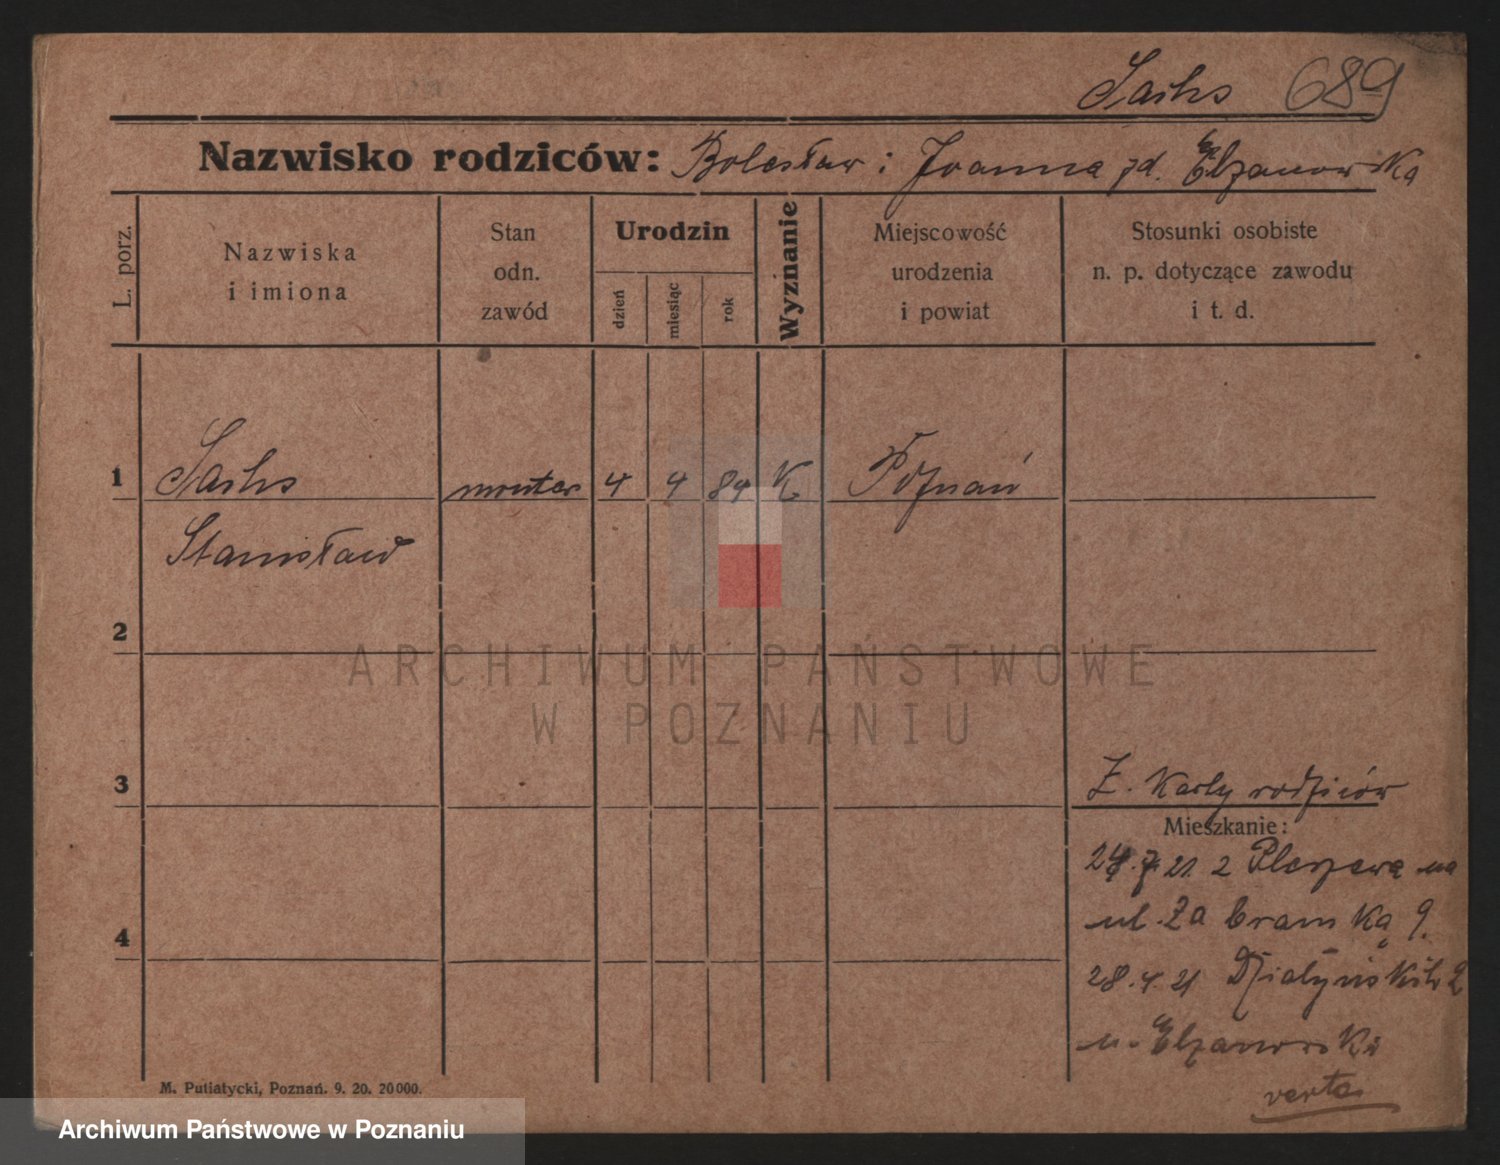 Sachs 689
Nazwisko rodziców: Bolesław i Joanna zd. Elzanowska
L. porz.
Nazwiska
i imiona
Stan
odn.
zawód
Urodzin
dzień
miesiąc
rok
Wyznanie
Miejscowość
urodzenia
i powiat
Stosunki osobiste
n. p. dotyczące zawodu
i t. d.
1 Sachs monter 4 4 84 K Poznań
Stanisław
2
ARCHIWUM PAŃSTWOWE
W POZNANIU
3
Z. Karty rodziców
Mieszkanie:
21 z Pleszewa na
ul. Za bramką 9.
4
28.4.21 Działyńskich 2
u. Elzanowski
verte
M. Putiatycki, Poznań. 9. 20. 20000.
Archiwum Państwowe w Poznaniu